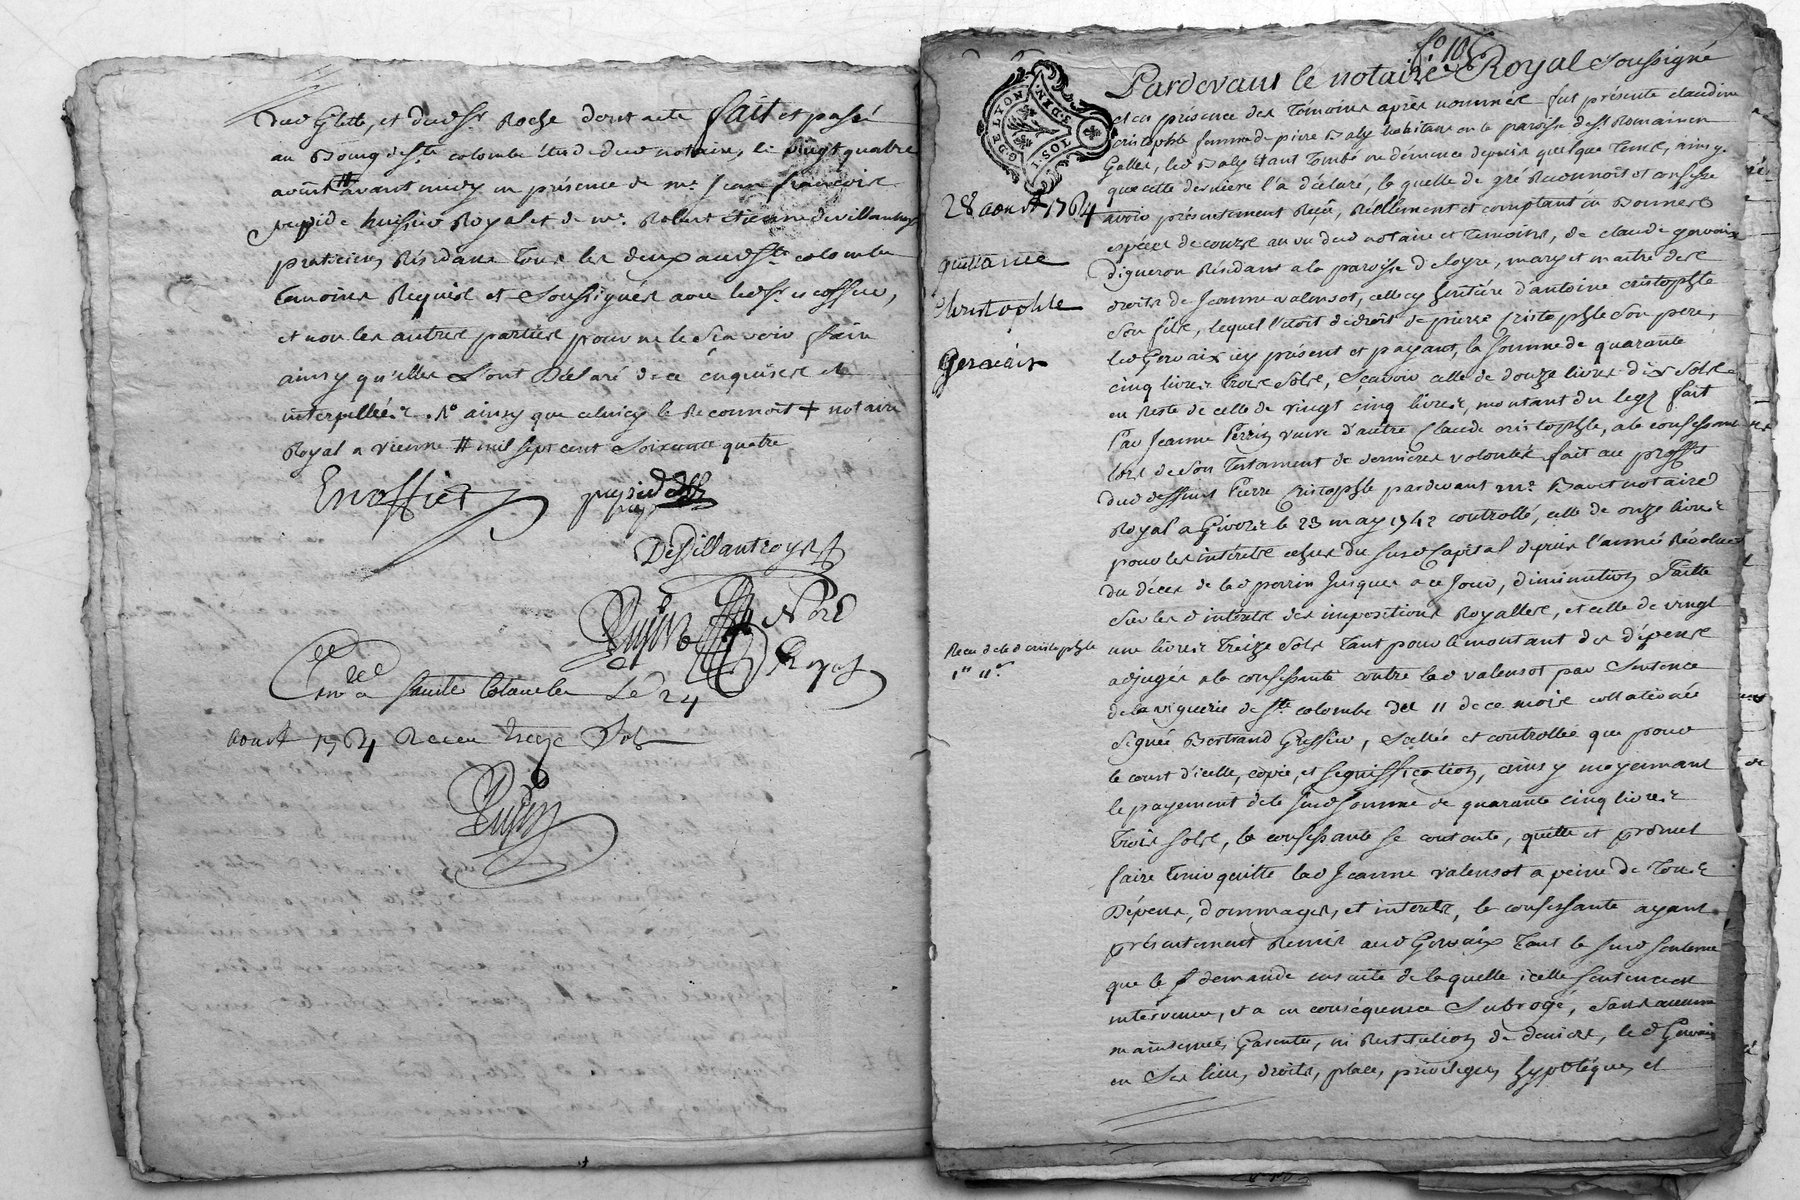 dud Glitte, et dud Sr Roche dont acte fait et passé
au Bourg de Ste colombe étude dud notaire, le vingt quatre
aoust avant midy en présence de me Jean françois
huissier Royal et de me Robert Etienne devillantroys
praticien Résidant tous les deux aud Ste colombe
temoins Requis et Soussignés avec led Sr escoffier,
et non les autres parties pour ne le Scavoir faire
ainsy qu'elles L'ont Déclaré de ce enquises et
interpellées. ainsy que celuicy le Reconnoit + notaire
Royal a vienne # mil sept cent Soixante quatre
Escoffier
Devillantroys
Nore
Royal
a Sainte Colombe Le 24
aoust 1764 Receu treize Sols
f.o 105
G. DE LYON
3. DEN.
Pardevant le notaire Royal Soussigné
et en présence des témoins après nommés fut présente claudine
cristophle femme de pierre Baly habitans en la paroisse de St Romain en
Galles, led Baly étant tombé en démence depuis quelque tems, ainsy
que cette dernière l'a déclaré, laquelle de gré Reconnoit et confesse
28 aoust 1764
avoir présentement Reçu, Réellement et comptant en Bonnes
espèces de cours au vu dud notaire et témoins, de claude gervaix
quittance
vigneron Résidant a la paroisse d'Loyre, mary et maitre des
Christophle
droits de Jeanne valensot, celle cy héritière d'antoine cristophle
Son fils, lequel l'étoit de droit de pierre cristophle Son pere,
Gervaix
led Gervaix icy présent et payant, la Somme de quarante
cinq livres trois Sols, Sçavoir celle de douze livres dix Sols
en Reste de celle de vingt cinq livres, montant du legs fait
Par Jeanne Perrin veuve d'autre Claude cristophle, a la confessante
lors de Son testament de dernieres volontés fait au proffit
dud deffunt Pierre Cristophle pardevant me Bavet notaire
Royal a Givors le 23 may 1742 controllé, celle de onze livres
pour les intérêts échus du Susd Capital depuis l'année Révolue
du décès de lad perrin Jusques a ce Jour, diminution Faitte
Sur les d intérêts des impositions Royalles, et celle de vingt
Receu de lad cristophle
une livres treize Sols tant pour le montant des dépens
adjugés a la confessante contre lad valensot par Sentence
de la viguerie de Ste colombe du 11 de ce mois collationée
Signée Bertrand Greffier, Scellée et controllée que pour
le coust d'icelle, copie, et Signiffication, ainsy moyennant
le payement de la Susd Somme de quarante cinq livres
trois Sols, la confessante Se contente, quitte et promet
faire tenir quitte lad Jeanne valensot a peine de tous
Dépens, dommages, et interets, la confessante ayant
présentement Remis aud Gervaix tant la Susd Sentence
que la demande ensuite de laquelle icelle Sentence est
intervenue, et a en conséquence Subrogé, Sans aucune
maintenue, Garentie, ni Restitution de deniers, led Gervaix
en Ses lieu, droits, place, privileges, hypotéques, et